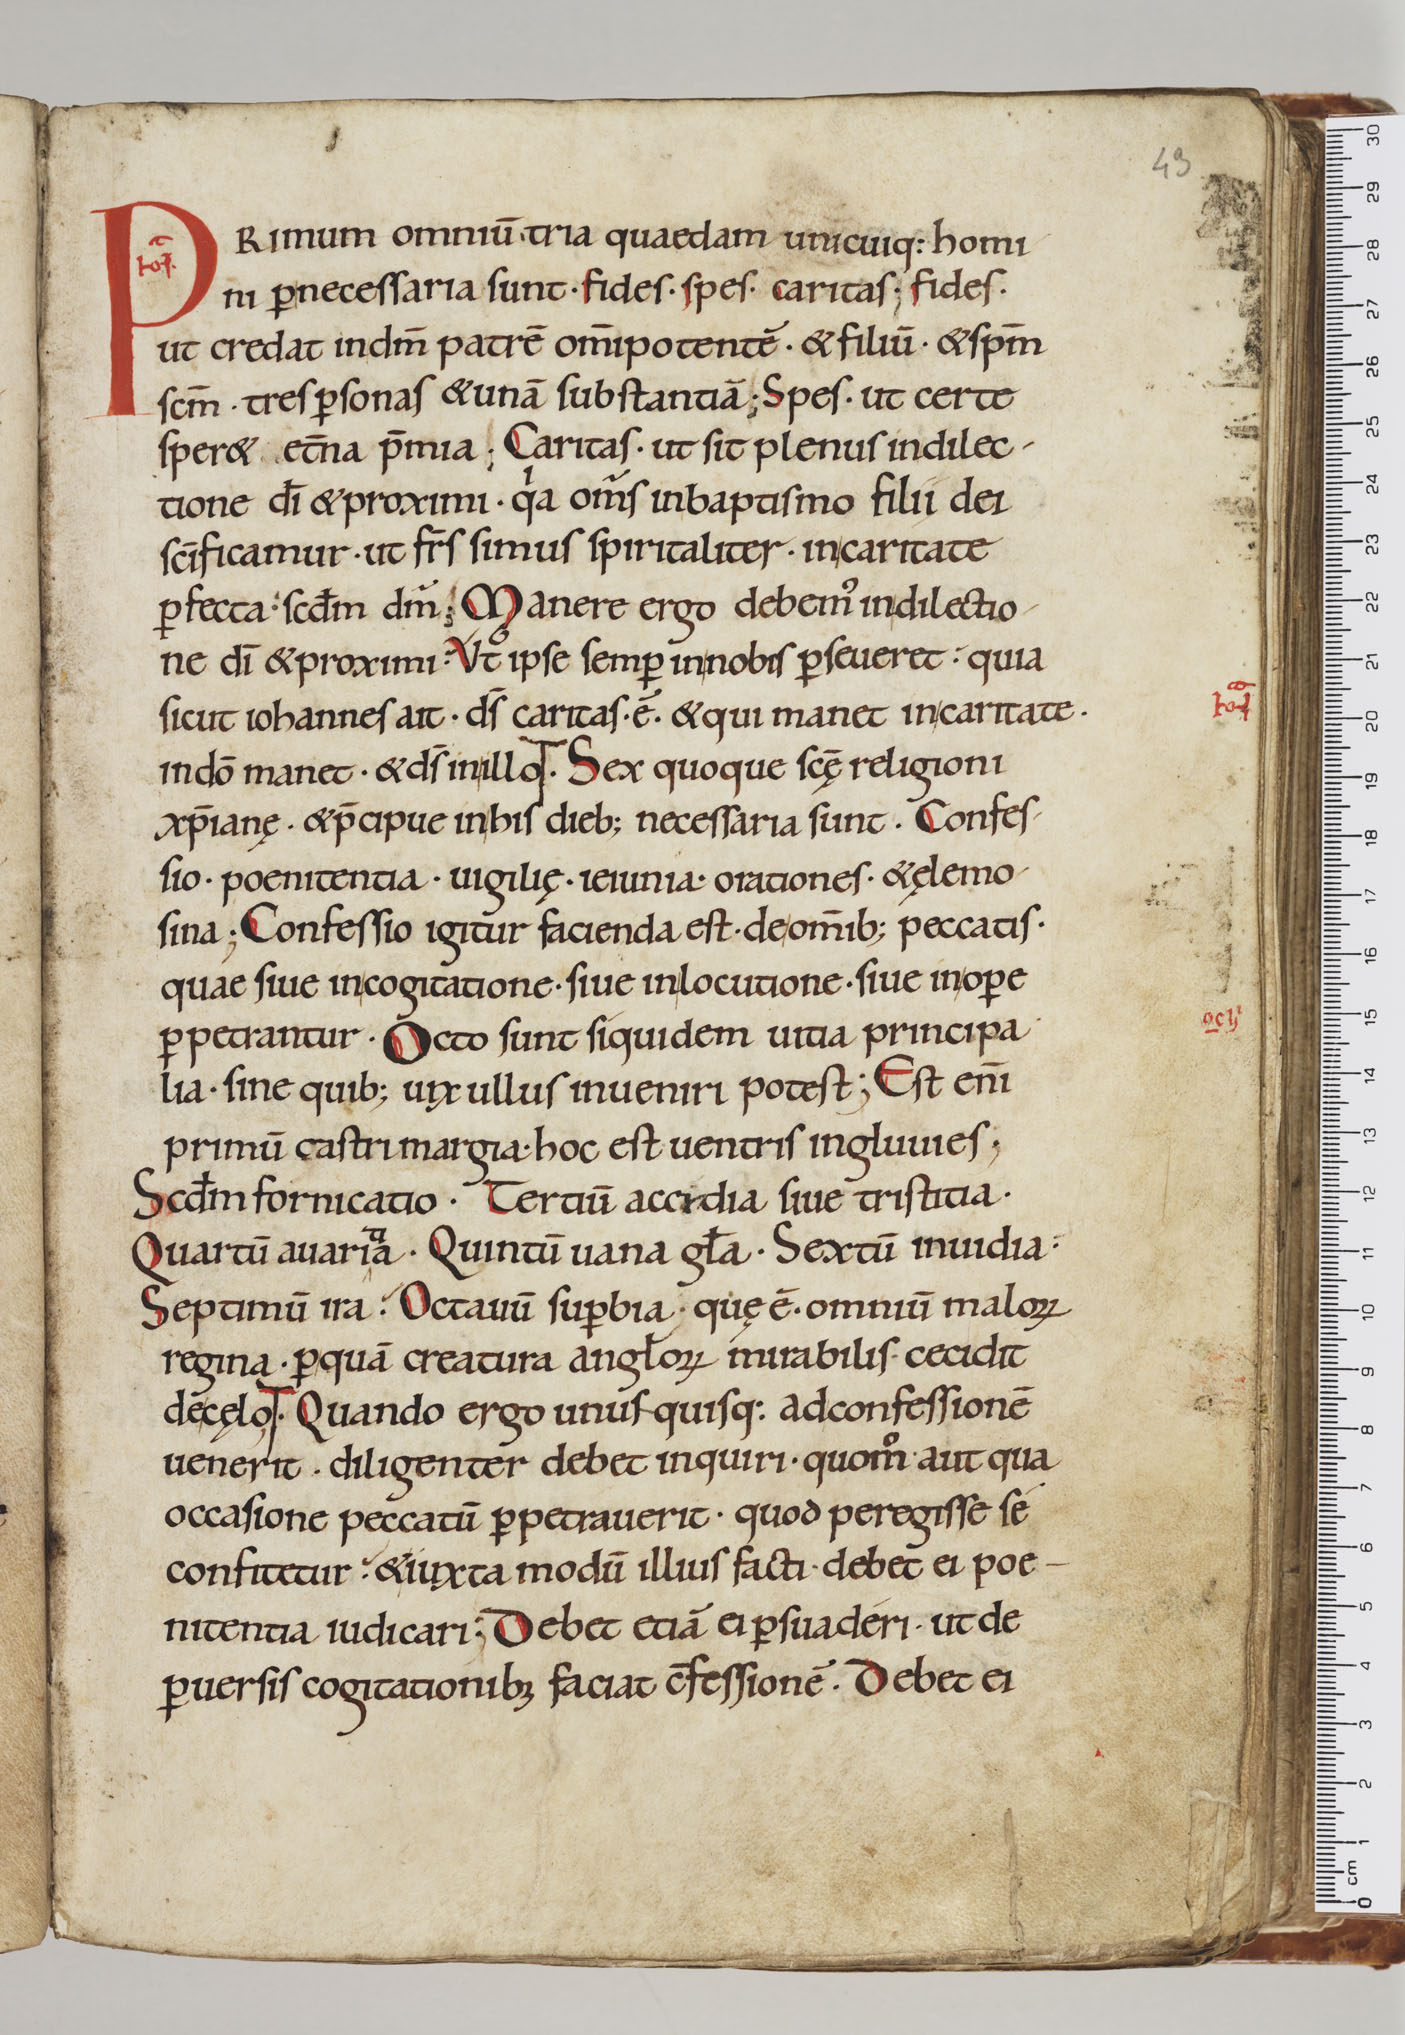 43
PRimum omniū·tria quaedam unicuiq: homi
ni ꝑnecessaria sunt·fides·spes·caritas; fides·
ut credat indm̄ patrē om̄ipotentē·&filiū·&spm̄
scm̄·tres ꝑsonas &unā substantiā; Spes·ut certe
sper& etn̄a p̄mia; Caritas·ut sit plenus indilec-
tione dī &proximi·qͥa om̄s inbaptismo filii dei
scīficamur·ut frs̄ simus spiritaliter·incaritate
ꝑfecta: scđm dm̄; Manere ergo debem᾿ indilectio-
ne dī &proximi: Vt ipse semꝑ innobis ꝑseueret: quia
sicut iohannes ait·ds̄ caritas·ē·&qui manet incaritate·
indō manet·&ds̄ inillo· Sex quoque scę̄ religioni
xp̄ianę·&p̄cipue inhis dieb; necessaria sunt· Confes-
sio·poenitentia·uigilię·ieiunia·orationes·&ęlemo-
sina; Confessio igitur facienda est·deom̄ib; peccatis·
quae siue incogitatione·siue inlocutione·siue inoꝑe
ꝑpetrantur· Octo sunt siquidem uitia principa
lia·sine quib; uix ullus inueniri potest; Est enī
primū castrimargia·hoc est uentris ingluuies;
Scđm fornicatio· Tertiū accidia siue tristitia·
Quartū auaritia· Quintū uana gła· Sextū inuidia:
Septimū ira: Octauū suꝑbia·quę ē·omniū maloꝝ
regina·ꝑquā creatura angłoꝝ mirabilis cecidit
decęlo· Quando ergo unus quisq: adconfessionē
uenerit·diligenter debet inquiri·quom̊ aut qua
occasione peccatū ꝑpetrauerit·quod peregisse se
confitetur: &iuxta modū illius facti·debet ei poe-
nitentia iudicari; Debet etiā ei ꝑsuaderi·ut de
ꝑuersis cogitationibꝫ faciat c̄fessionē· Debet ei
30
29
28
27
26
25
24
23
22
21
20
19
18
17
16
15
14
13
12
11
10
9
8
7
6
5
4
3
2
1
cm
0